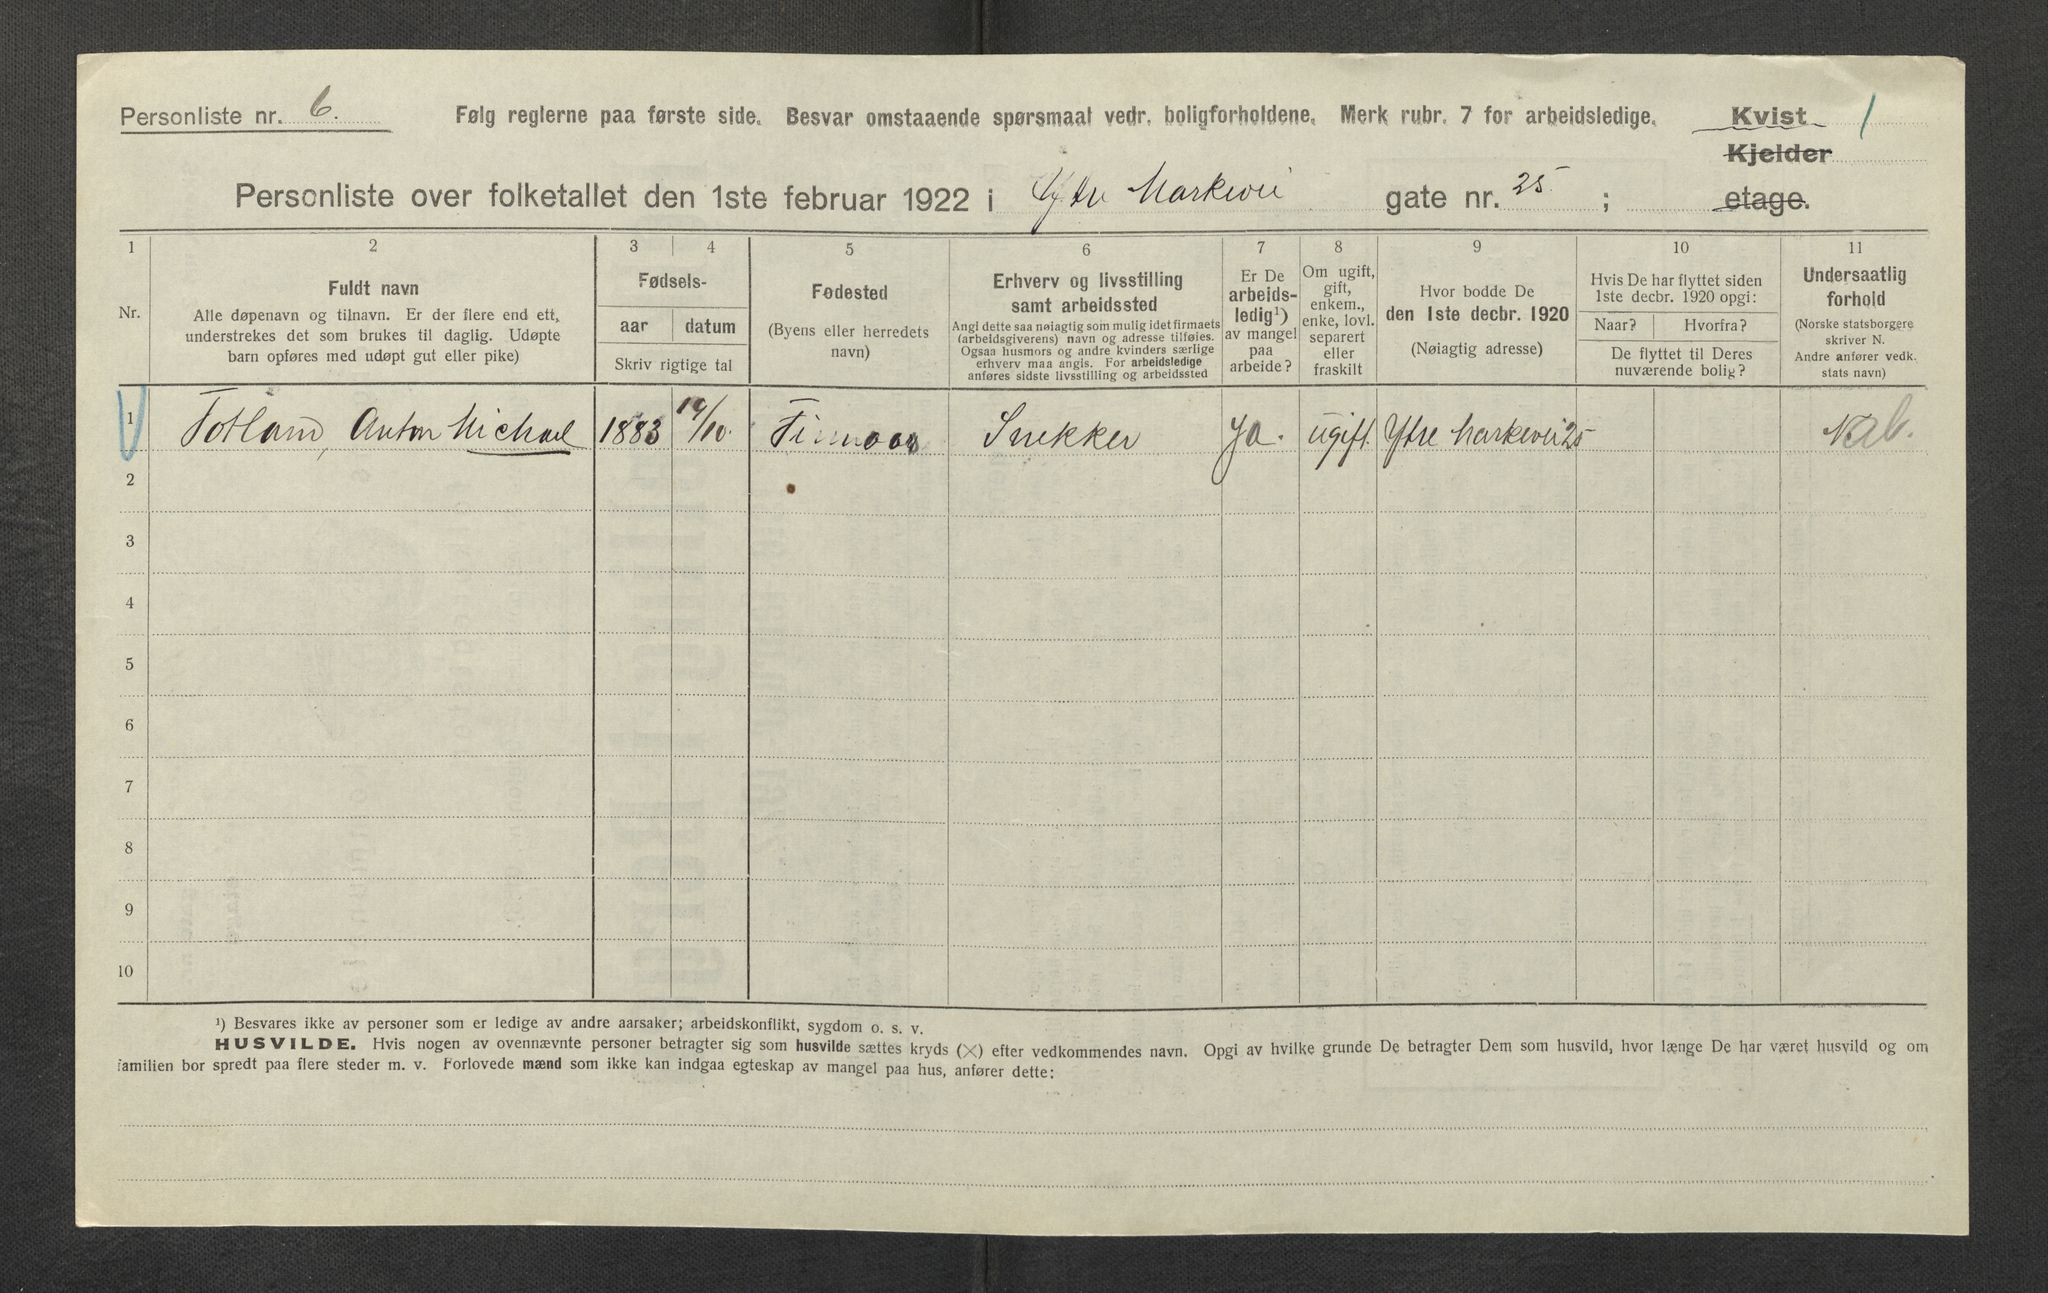 Personliste nr. 6. Følg reglerne paa første side. Besvar omstaaende spørsmaal vedr. boligforholdene. Merk rubr. 7 for arbeidsledige. Kvist 1
Kjelder
Personliste over folketallet den 1ste februar 1922 i Ytre Markevei gate nr. 25. ; etage.
1 2 3 4 5 6 7 8 9 10 11
Nr.
Fuldt navn
Alle døpenavn og tilnavn. Er der flere end ett,
understrekes det som brukes til daglig. Udøpte
barn opføres med udøpt gut eller pike)
Fødsels-
aar datum
Skriv rigtige tal
Fødested
(Byens eller herredets
navn)
Erhverv og livsstilling
samt arbeidssted
Angi dette saa nøiagtig som mulig idet firmaets
(arbeidsgiverens) navn og adresse tilføies.
Ogsaa husmors og andre kvinders særlige
erhverv maa angis. For arbeidsledige
anføres sidste livsstilling og arbeidssted
Er De
arbeids-
ledig¹)
av mangel
paa
arbeide?
Om ugift,
gift,
enkem.,
enke, lovl.
separert
eller
fraskilt
Hvor bodde De
den 1ste decbr. 1920
(Nøiagtig adresse)
Hvis De har flyttet siden
1ste decbr. 1920 opgi:
Naar? Hvorfra?
De flyttet til Deres
nuværende bolig?
Undersaatlig
forhold
(Norske statsborgere
skriver N.
Andre anfører vedk.
stats navn)
1 Totland, Anton Michael 1883 19/10. Finnaas Snekker Ja. ugift. Ytre Markevei 25 N
2
3
4
5
6
7
8
9
10
¹) Besvares ikke av personer som er ledige av andre aarsaker; arbeidskonflikt, sygdom o. s. v.
HUSVILDE. Hvis nogen av ovennævnte personer betragter sig som husvilde sættes kryds (×) efter vedkommendes navn. Opgi av hvilke grunde De betragter Dem som husvild, hvor længe De har været husvild og om
familien bor spredt paa flere steder m. v. Forlovede mænd som ikke kan indgaa egteskap av mangel paa hus, anfører dette: